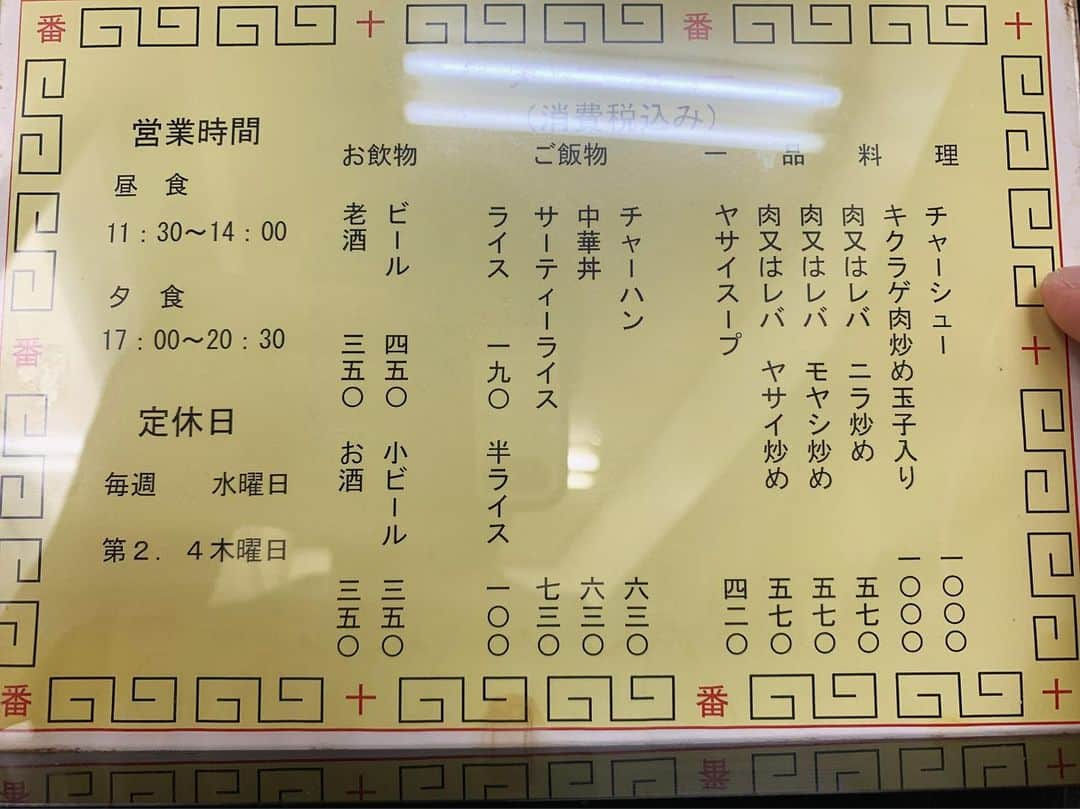 番 十 番 十
(消費税込み)
一品料理
チャーシュー 一〇〇〇
キクラゲ肉炒め玉子入り 一〇〇〇
肉又はレバ ニラ炒め 五七〇
肉又はレバ モヤシ炒め 五七〇
肉又はレバ ヤサイ炒め 五七〇
ヤサイスープ 四二〇
ご飯物
チャーハン 六三〇
中華丼 六三〇
サーティーライス 七三〇
ライス 一九〇 半ライス 一〇〇
お飲物
ビール 四五〇 小ビール 三五〇
老酒 三五〇 お酒 三五〇
営業時間
昼 食
11:30～14:00
夕 食
17:00～20:30
定休日
毎週 水曜日
第2.4木曜日
番
十
番 十 番 十
番